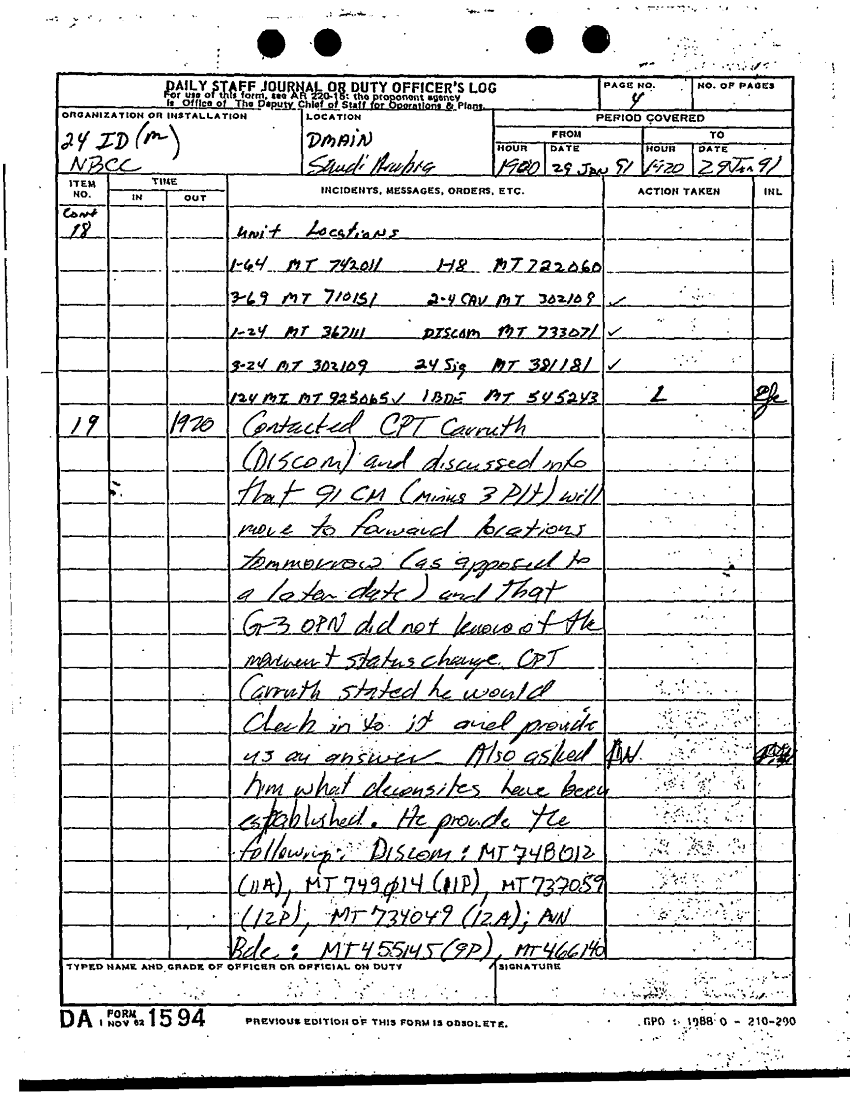 DAILY STAFF JOURNAL OR DUTY OFFICER'S LOG
For use of this form, see AR 220-15; the proponent agency
is Office of The Deputy Chief of Staff for Operations & Plans.
PAGE NO.
4
NO. OF PAGES
ORGANIZATION OR INSTALLATION
24 ID (m)
NBCC
LOCATION
DMAIN
Saudi Arabia
PERIOD COVERED
FROM
TO
HOUR
DATE
HOUR
DATE
1900
29 JAN 91
1920
29 Jan 91
ITEM NO.
TIME
IN
OUT
INCIDENTS, MESSAGES, ORDERS, ETC.
ACTION TAKEN
INL
Cont
18
Unit Locations
1-64 MT 742011 1-18 MT 722060
3-69 MT 710151 2-4 CAV MT 302109 ✓
1-24 MT 367111 DISCOM MT 733071 ✓
3-24 MT 302109 24 Sig MT 381181 ✓
124 MI MT 925065 ✓ 1 BDE MT 545243 L
19 1920 Contacted CPT Carruth
(DISCOM) and discussed info
that 91 CM (minus 3 Plt) will
move to forward locations
tommorrow (as apposed to
a later date) and that
G-3 OPN did not know of the
movement status change. CPT
Carruth stated he would
check in to it and provide
us an answer. Also asked
him what deconsites have been
established. He provide the
following: Discom: MT 748012
(11A), MT 749014 (11P), MT 737059
(12P), MT 734049 (12A); AVN
Bde: MT 455145 (9P), MT 466140
TYPED NAME AND GRADE OF OFFICER OR OFFICIAL ON DUTY
SIGNATURE
DA FORM 1 NOV 62 1594
PREVIOUS EDITION OF THIS FORM IS OBSOLETE.
GPO : 1988 O - 210-290